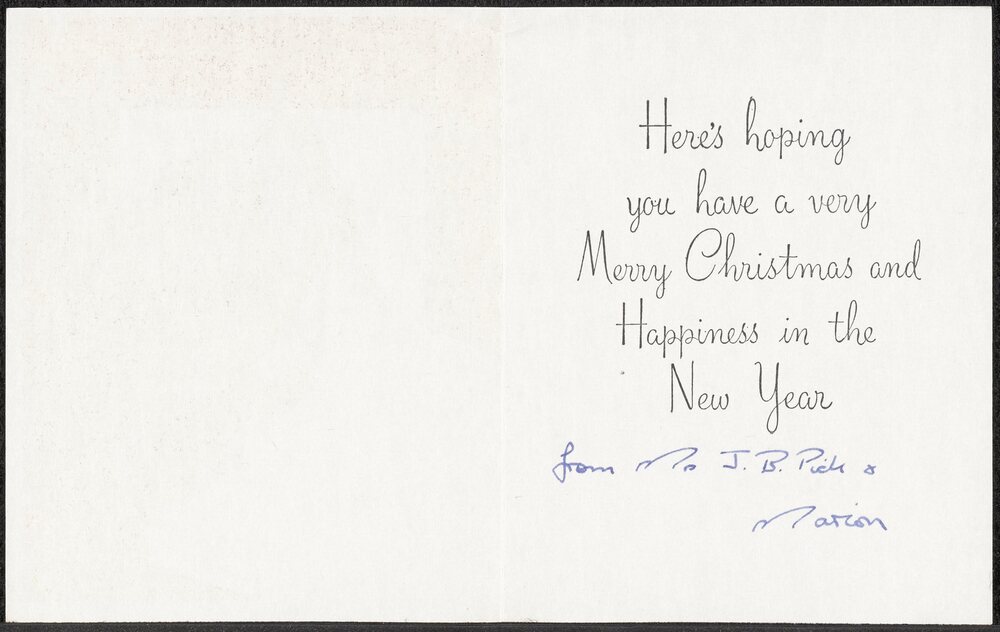 Here's hoping
you have a very
Merry Christmas and
Happiness in the
New Year
from Mrs J. B. Pick &
Marion